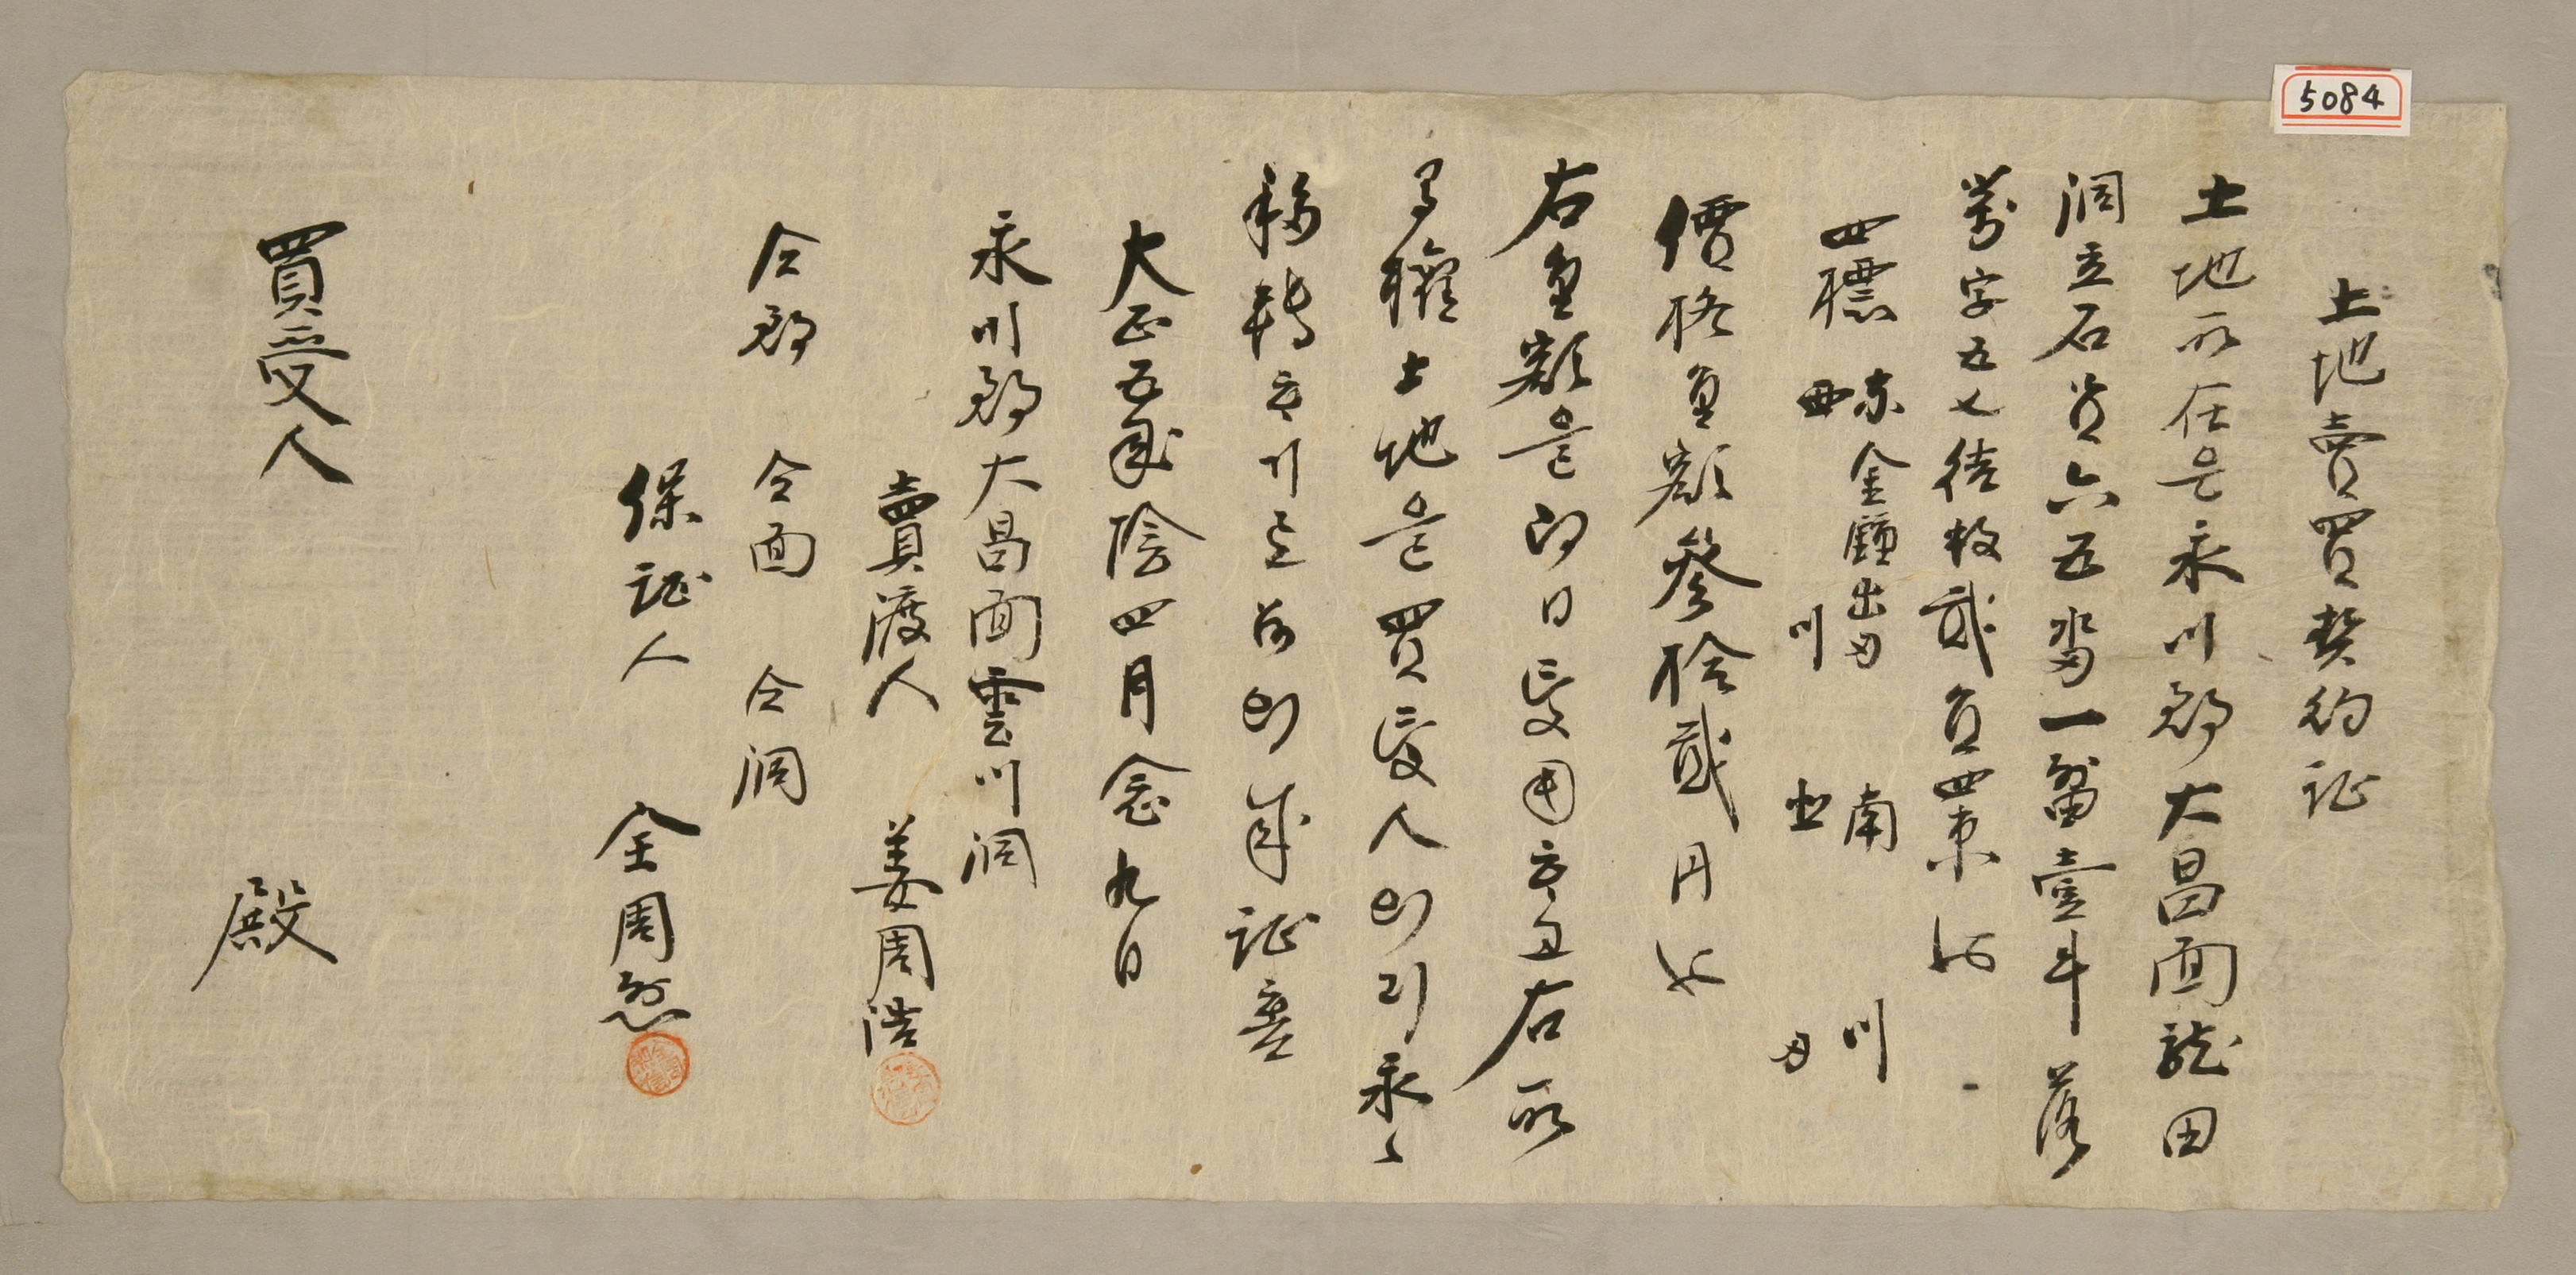 5084
土地賣買契約证
土地所在은永川郡大昌面龍田
洞立石員六五畓一畓壹斗落
字五七徒数貳負四束
四標 東金鍾出畓 南川
西川 北畓
價格金額參拾貳円
右金額은即日受用하고右所
有權土地은買受人의긔永〻
移轉하기로 成证喜
大正五年陰四月念九日
永川郡大昌面雲川洞
賣渡人 姜周浩
仝郡 仝面 仝洞
保证人 全周
買受人 殿